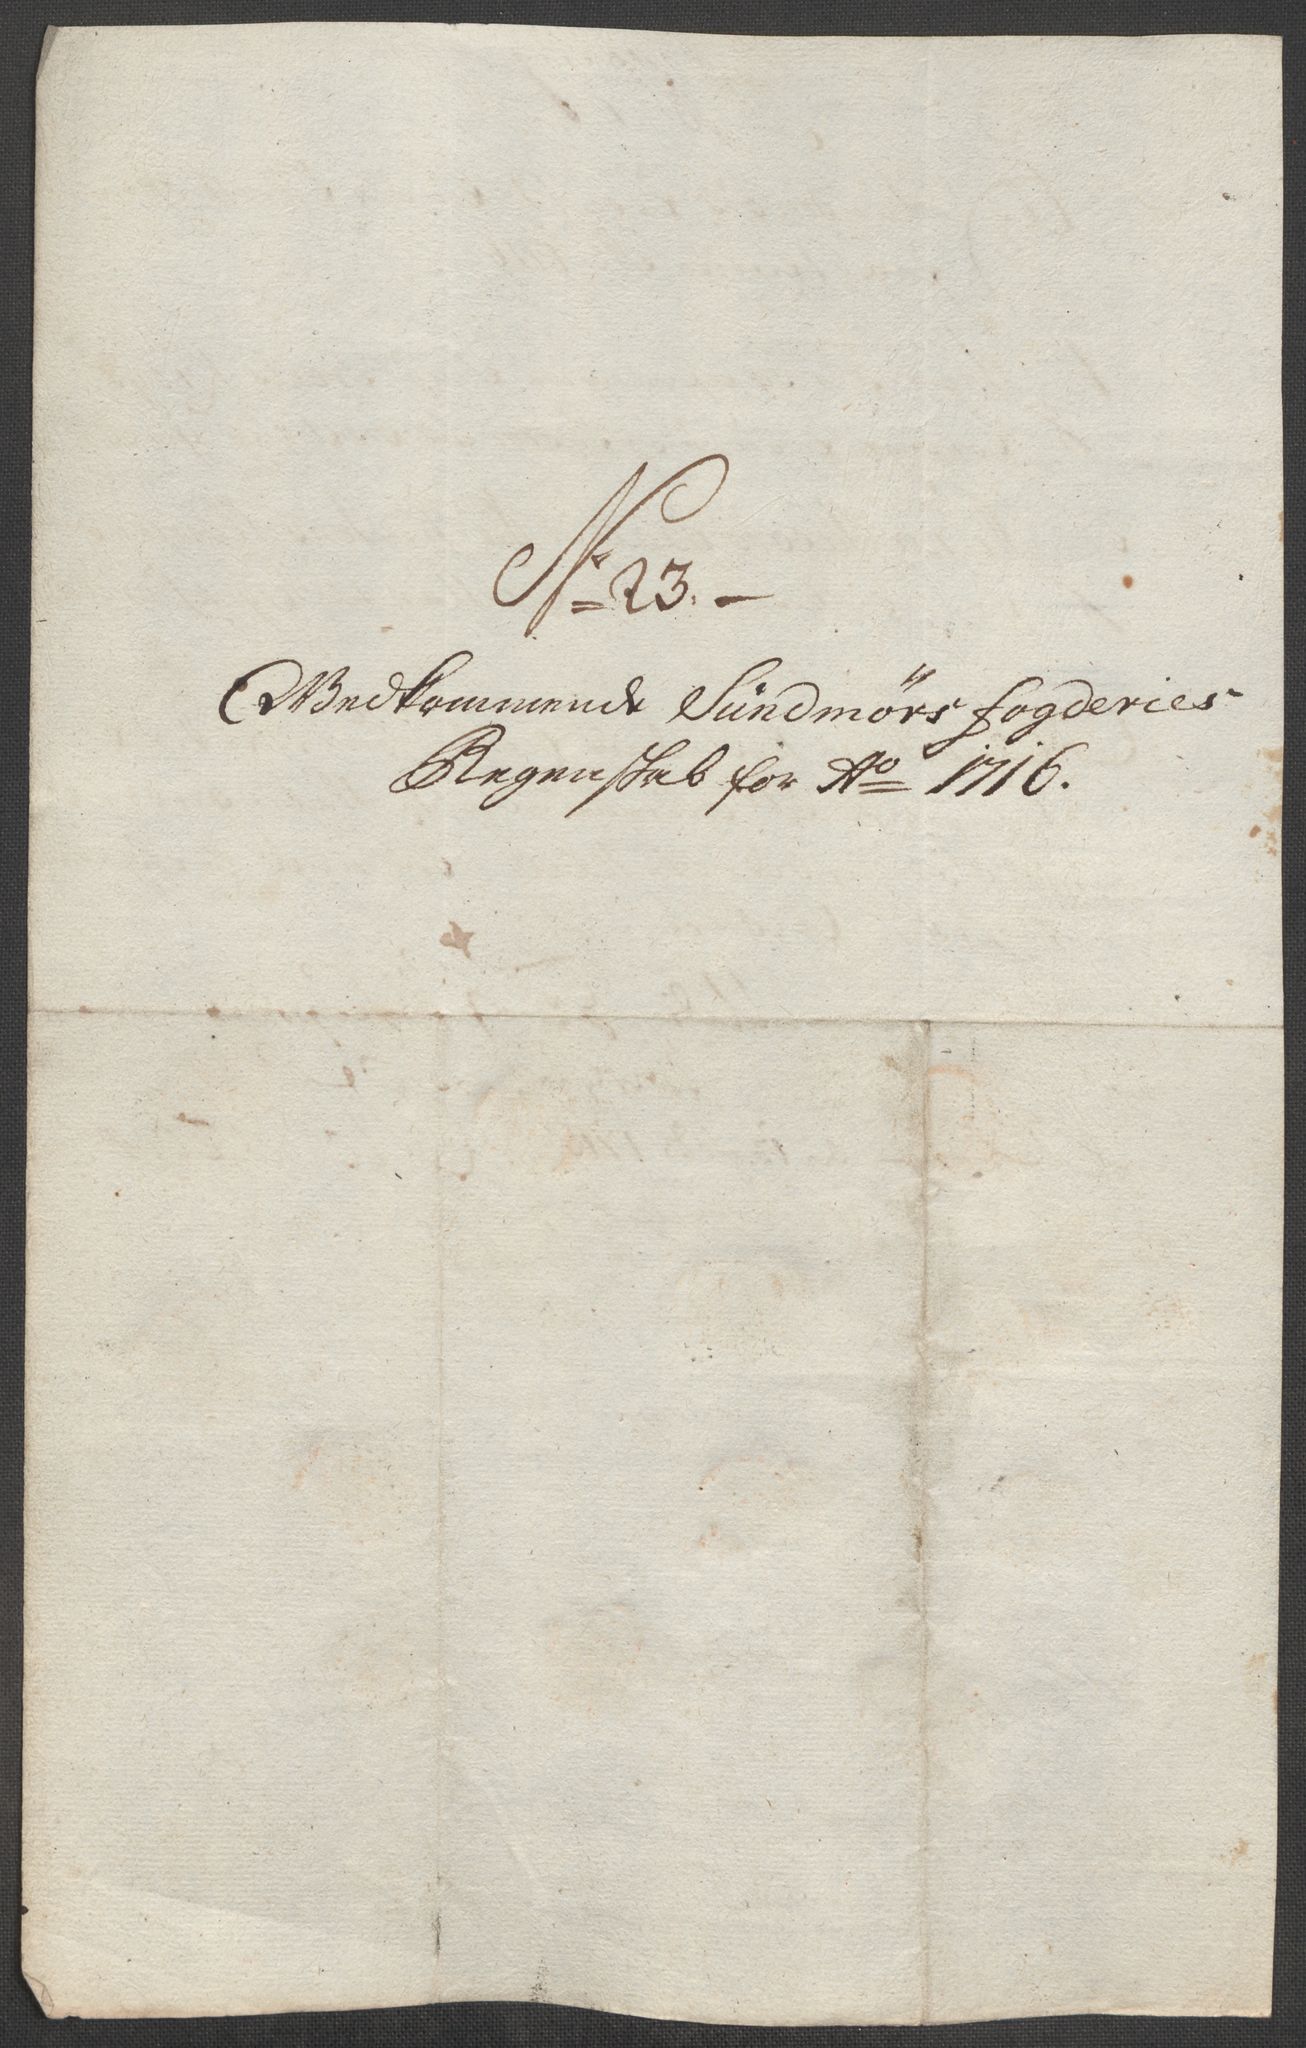 No 23. –
Vedkommende Sündmörs fogderies
Regenskab for Ao 1716.